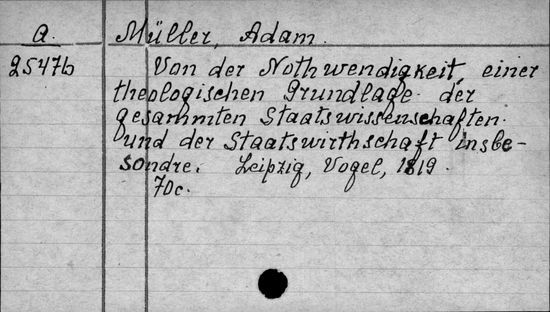 a. Müller, Adam.
2547b Von der Nothwendigkeit, einer
theologischen Grundlage der
gesammten Staatswissenschaften
und der Staatswirthschaft insbe-
sondre. Leipzig, Vogel, 1819.
70c.